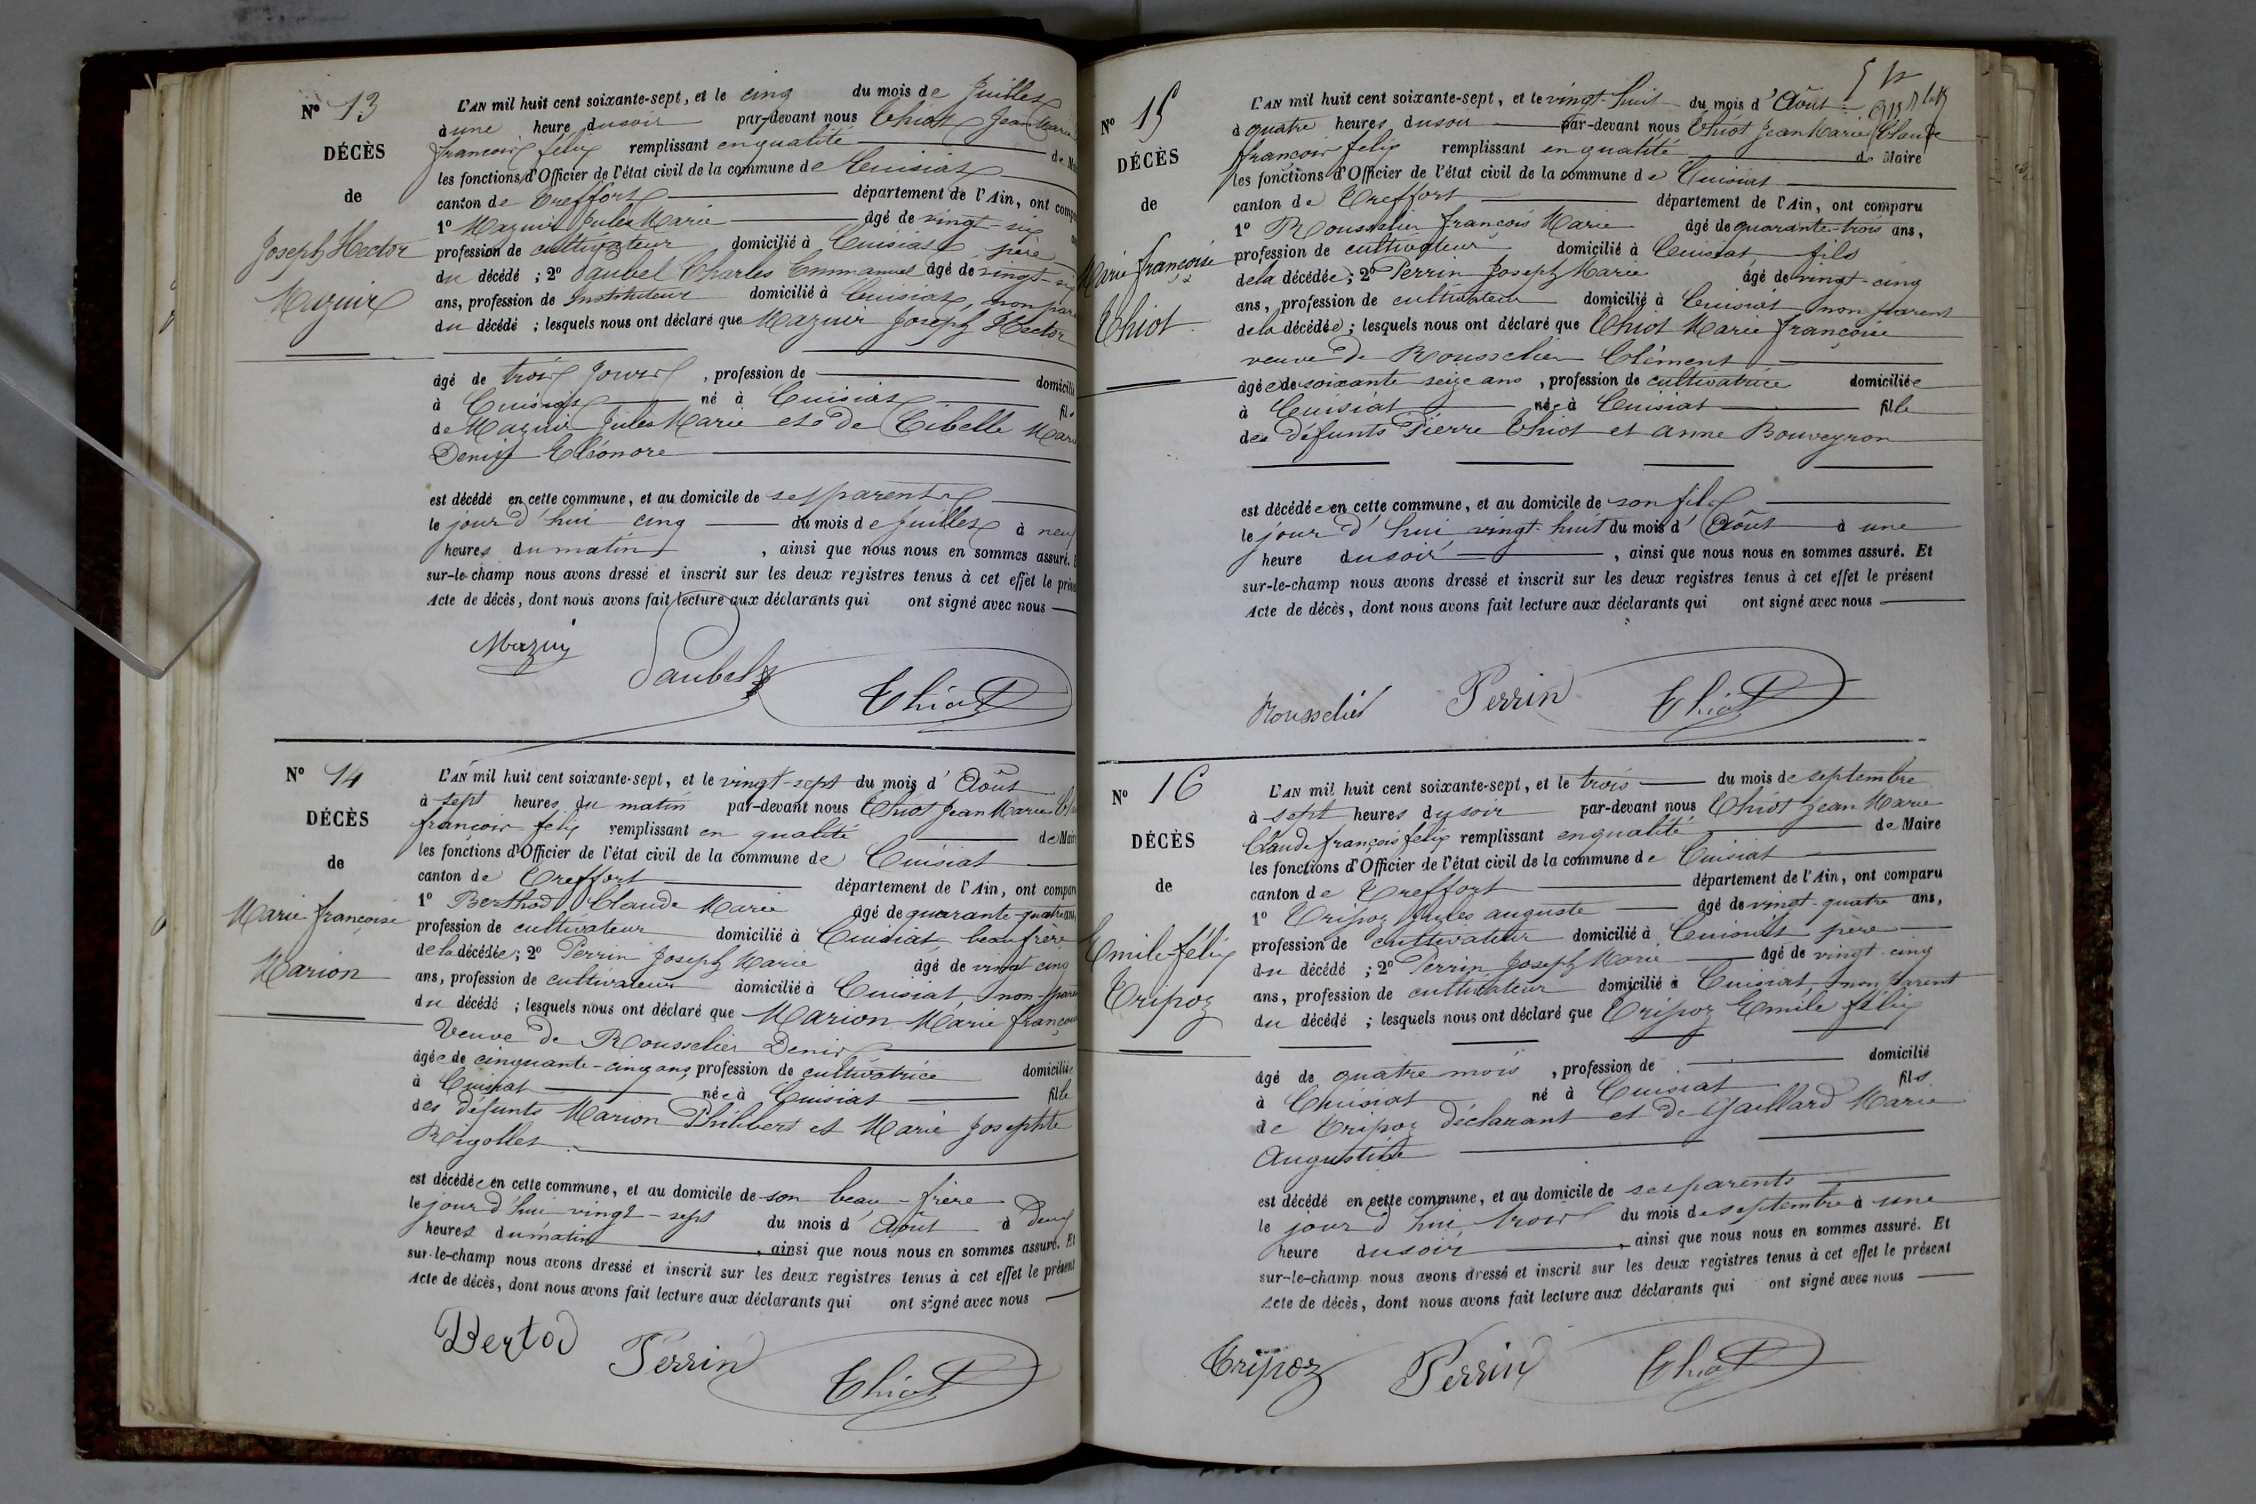 Nº 13
DÉCÈS
de
Joseph Hector
Mazuir
L'AN mil huit cent soixante-sept, et le cinq du mois de Juillet
à une heure du soir par-devant nous Thiot Jean Marie
francois felix remplissant en qualité de Mai
les fonctions d'Officier de l'état civil de la commune de Cuisiat
canton de Treffort département de l'Ain, ont compa
1º Mazuir Jules Marie âgé de vingt-six
profession de cultivateur domicilié à Cuisiat père
du décédé ; 2º Daubel Charles Emmanuel âgé de vingt-six
ans, profession de Instituteur domicilié à Cuisiat, non pare
du décédé ; lesquels nous ont déclaré que Mazuir Joseph Hector
âgé de trois jours , profession de domicilié
à Cuisiat né à Cuisiat fils
de Mazuir Jules Marie et de Cibelle Marie
Denise Eléonore
est décédé en cette commune, et au domicile de ses parents
le jour d'hui cinq du mois de Juillet à neuf
heures du matin , ainsi que nous nous en sommes assuré. E
sur-le-champ nous avons dressé et inscrit sur les deux registres tenus à cet effet le prése
Acte de décès, dont nous avons fait lecture aux déclarants qui ont signé avec nous
Mazuy
Daubel
Thiot
Nº 14
DÉCÈS
de
Marie françoise
Marion
L'AN mil huit cent soixante-sept, et le vingt-sept du mois d'Août
à sept heures du matin par-devant nous Thiot Jean Marie Cla
francois felix remplissant en qualité de Maire
les fonctions d'Officier de l'état civil de la commune de Cuisiat
canton de Treffort département de l'Ain, ont comparu
1º Berthod Claude Marie âgé de quarante-quatre ans,
profession de cultivateur domicilié à Cuisiat beau frère
de la décédée ; 2º Perrin Joseph Marie âgé de vingt cinq
ans, profession de cultivateur domicilié à Cuisiat, non-paren
du décédé ; lesquels nous ont déclaré que Marion Marie françoise
Veuve de Rousselier Denis
âgée de cinquante-cinq ans, profession de cultivatrice domiciliée
à Cuisiat née à Cuisiat fille
des défunts Marion Philibert et Marie Josephte
Rigollet
est décédée en cette commune, et au domicile de son beau-frère
le jour d'hui vingt-sept du mois d'Août à Deux
heures du matin , ainsi que nous nous en sommes assuré. Et
sur-le-champ nous avons dressé et inscrit sur les deux registres tenus à cet effet le présent
Acte de décès, dont nous avons fait lecture aux déclarants qui ont signé avec nous
Bertod
Perrin
Thiot
Nº 15
DÉCÈS
de
Marie françoise
Thiot
L'AN mil huit cent soixante-sept, et le vingt-huit du mois d'Août
à quatre heures du soir par-devant nous Thiot Jean Marie Claude
francois felix remplissant en qualité de Maire
les fonctions d'Officier de l'état civil de la commune de Cuisiat
canton de Treffort département de l'Ain, ont comparu
1º Rousselier françois Marie âgé de quarante-trois ans,
profession de cultivateur domicilié à Cuisiat fils
de la décédée ; 2º Perrin Joseph Marie âgé de vingt-cinq
ans, profession de cultivateur domicilié à Cuisiat non parent
de la décédée ; lesquels nous ont déclaré que Thiot Marie françoise
veuve de Rousselier Clément
âgée de soixante seize ans , profession de cultivatrice domiciliée
à Cuisiat née à Cuisiat fille
des défunts Pierre Thiot et anne Bouveyron
est décédée en cette commune, et au domicile de son fils
le jour d'hui vingt-huit du mois d'Août à une
heure du soir , ainsi que nous nous en sommes assuré. Et
sur-le-champ nous avons dressé et inscrit sur les deux registres tenus à cet effet le présent
Acte de décès, dont nous avons fait lecture aux déclarants qui ont signé avec nous
Rousselier
Perrin
Thiot
Nº 16
DÉCÈS
de
Emile félix
Tripoz
L'AN mil huit cent soixante-sept, et le trois du mois de septembre
à sept heures du soir par-devant nous Thiot Jean Marie
Claude françois felix remplissant en qualité de Maire
les fonctions d'Officier de l'état civil de la commune de Cuisiat
canton de Treffort département de l'Ain, ont comparu
1º Tripoz Jules auguste âgé de vingt-quatre ans,
profession de cultivateur domicilié à Cuisiat père
du décédé ; 2º Perrin Joseph Marie âgé de vingt-cinq
ans, profession de cultivateur domicilié à Cuisiat, non parent
du décédé ; lesquels nous ont déclaré que Tripoz Emile félix
âgé de quatre mois , profession de domicilié
à Cuisiat né à Cuisiat fils
de Tripoz déclarant et de Gaillard Marie
Augustine
est décédé en cette commune, et au domicile de ses parents
le jour d'hui trois du mois de septembre à une
heure du soir , ainsi que nous nous en sommes assuré. Et
sur-le-champ nous avons dressé et inscrit sur les deux registres tenus à cet effet le présent
Acte de décès, dont nous avons fait lecture aux déclarants qui ont signé avec nous
Tripoz
Perrin
Thiot